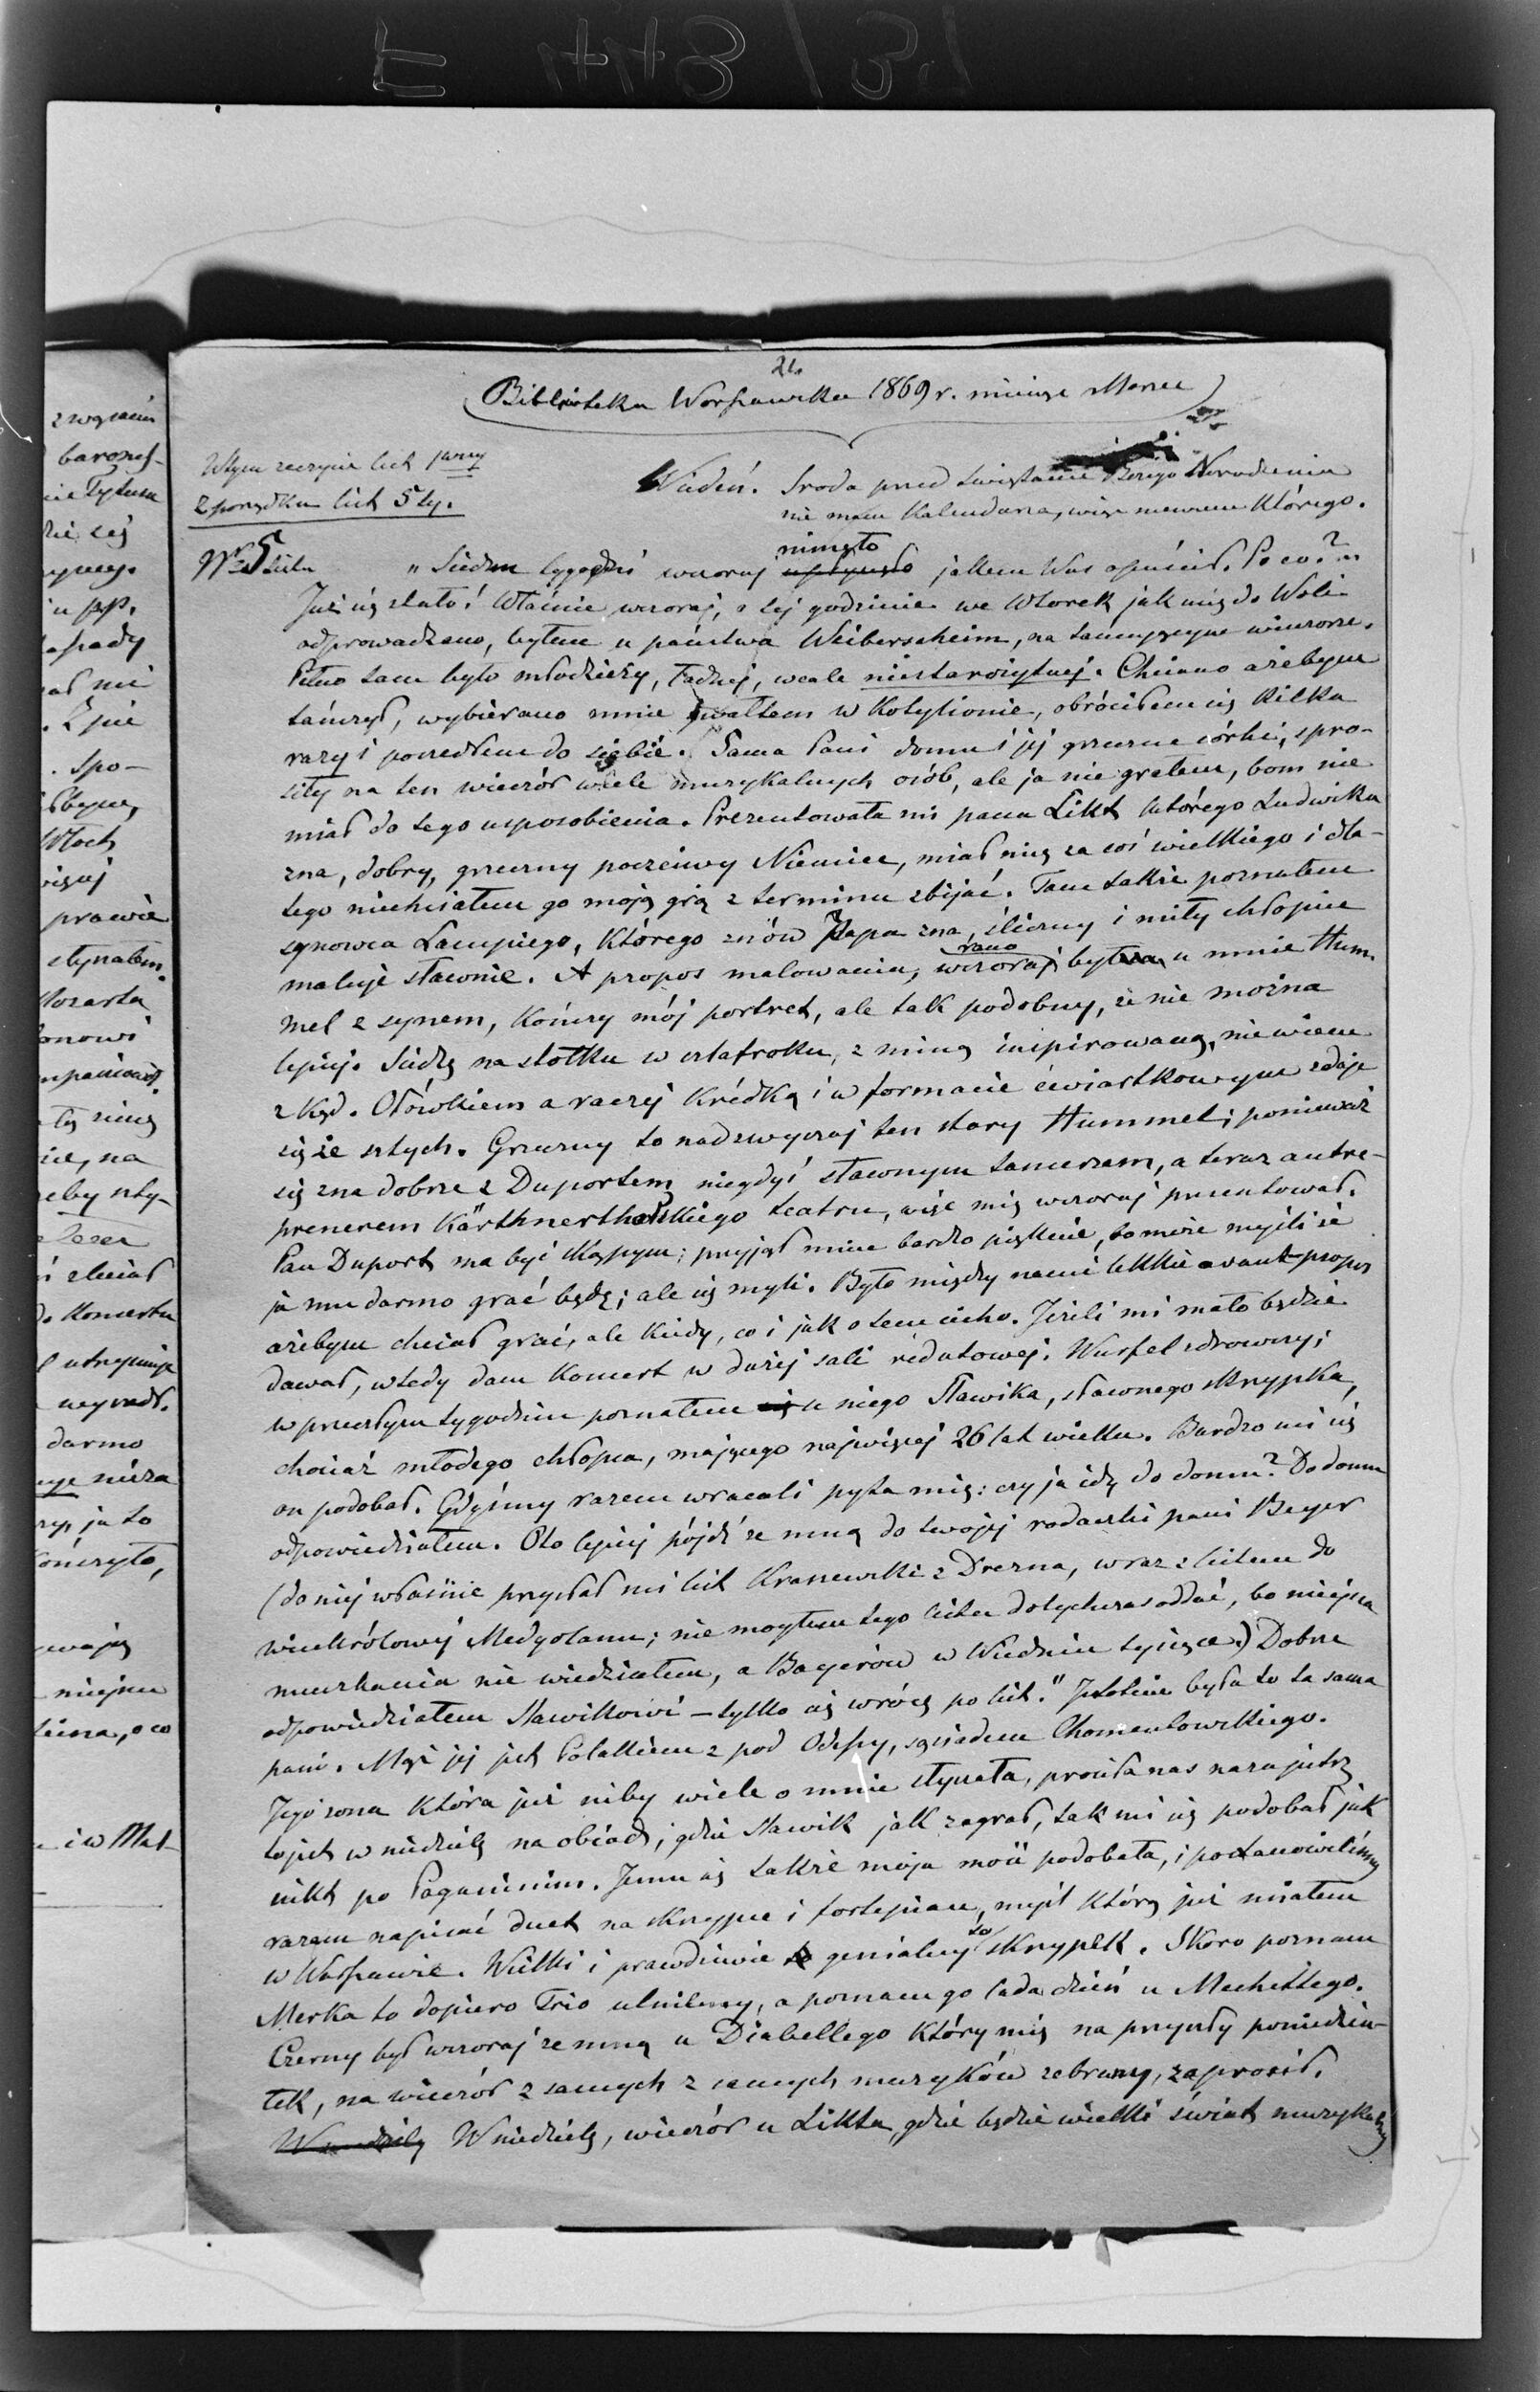 E 443/31
21.
Biblioteka Warszawska 1869 r. miesiąc Marzec
W tym zeszycie list 1wszy
z porządku list 5ty.
Wiedeń. Środa przed świętami Bożego Narodzenia
nie mam Kalendarza, więc niewiem Którego.
minęło
Nr 5 listu „Siedm tygodni wczoraj upłynęło jakem Was opuścił. Po co? ..
Już się stało! Właśnie wczoraj, o tej godzinie we Wtorek jak mię do Woli
odprowadzano, byłem u państwa Weiberheim, na tańcującym wieczorze.
Pełno tam było młodzieży, ładnej, wcale niestarożytnej. Chciano ażebym
tańczył, wybierano mnie gwałtem w Kotylionie, obróciłem się Kilka
razy i poszedłem do siebie. Sama Pani domu i jej grzeczne córki, spro-
siły na ten wieczór wiele muzykalnych osób, ale ja nie grałem, bom nie
miał do tego usposobienia. Prezentowała mi pana Likt którego Ludwika
zna, dobry, grzeczny poczciwy Niemiec, miał mię za coś wielkiego i dla-
tego niechciałem go moją grą z terminu zbijać. Tam także poznałem
synowca Lampiego, Którego znów Papa zna, śliczny i miły chłopiec
maluje sławnie. A propos malowania, wczoraj rano był u mnie Hum-
mel z synem, Kończy mój portret, ale tak podobny, że nie można
lepiej. Siedzę na stołku w szlafroku, z miną inspirowaną, nie wiem
z kąd. Ołówkiem a raczej Krédką i w formacie ćwiartkowym zdaje
się że sztych. Grzeczny to nadzwyczaj ten stary Hummel; ponieważ
się zna dobrze z Duportem niegdyś sławnym tancerzem, a teraz antre-
prenerem Kärthnerthorskiego teatru, więc mię wczoraj prezentował.
Pan Duport ma być skąpym; przyjął mnie bardzo pięknie, bo może myśli że
ja mu darmo grać będę; ale się myli. Było między nami lekkie avant-propos
ażebym chciał grać, ale kiedy, co i jak o tem cicho. Jeżeli mi mało będzie
dawał, wtedy dam Koncert w dużej sali redutowej. Wurfel zdrowszy;
w przeszłym tygodniu poznałem u niego Sławika, sławnego skrzypka,
chociaż młodego chłopca, mającego najwięcej 26 lat wieku. Bardzo mi się
on podobał. Gdyśmy razem wracali pyta mię: czy ja idę do domu? Do domu
odpowiedziałem. Oto lepiej pójdź ze mną do twojej rodaczki pani Beyer
(do niej właśnie przysłał mi list Kraszewski z Drezna, wraz z listem do
wicekrólowej Medyolanu; nie mogłem tego listu dotychczas oddać, bo miejsca
mieszkania nie wiedziałem, a Bayerów w Wiedniu tysiące.) Dobrze
odpowiedziałem Slawikowi – tylko się wrócę po list." Istotnie była to ta sama
pani. Mąż jej jest Polakiem z pod Odessy, sąsiadem Chomentowskiego.
Jego żona która już niby wiele o mnie słyszała, prosiła nas nazajutrz
to jest w niedzielę na obiad; gdzie Slawik jak zagrał, tak mi się podobał jak
nikt po Paganinim. Jemu się także moja mość podobała, i postanowiliśmy
razem napisać duet na skrzypce i fortepian, myśl którą już miałem
w Warszawie. Wielki i prawdziwie genialny to skrzypek. Skoro poznam
Merka to dopiero Trio utniemy, a poznam go lada dzień u Mechettego.
Czerny był wczoraj ze mną u Diabellego Który mię na przyszły poniedzia-
łek, na wieczór z samych z samych muzyków zebrany, zaprosił.
W niedzielę W niedzielę, wieczór u Likta, gdzie będzie wielki świat muzykalny
barones-
nie Tytusa
i u pp.
spo-
Włoch
prawie
słyszałem.
Mozarta
zie, na
żeby usły-
do Koncertu
darmo
ryp ja to
kończyło,
miejsca
i w Mal-